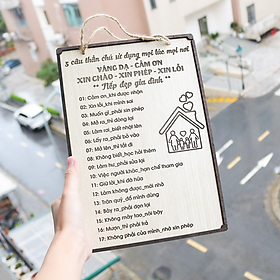 5 câu thần chú sử dụng mọi lúc mọi nơi
VÂNG DẠ - CẢM ƠN
XIN CHÀO - XIN PHÉP - XIN LỖI
** Nếp đẹp gia đình **
01: Cảm ơn_khi được nhận
02: Xin lỗi_khi mình sai
03: Muốn gì_phải xin phép
04: Mở ra_thì đóng lại
05: Làm rơi_biết nhặt lên
06: Lấy ra_phải bỏ vào
07: Mở lên_thì tắt đi
08: Không biết_học hỏi thêm
09: Làm hư_phải sửa lại
10: Việc người khác_hạn chế tham gia
11: Giữ lời_khi đã hứa
12: Làm không được_mới nhờ
13: Trân quý_đồ mình dùng
14: Bày ra_phải dọn lại
15: Không mây tạo_nói bậy
16: Mượn_thì phải trả
17: Không phải của mình_nhớ xin phép